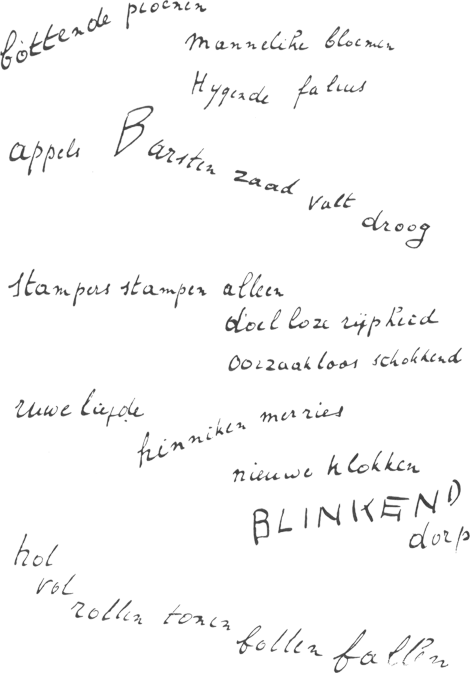 bottende pioenen
Mannelike bloemen
Hygende fallus
appels Barsten zaad valt droog
stampers stampen alleen
doel loze rijpheid
oorzaakloos schokkend
ruwe liefde
hinniken merries
nieuwe klokken
BLINKEND
dorp
hol
vol
rollen tonen bollen fallen